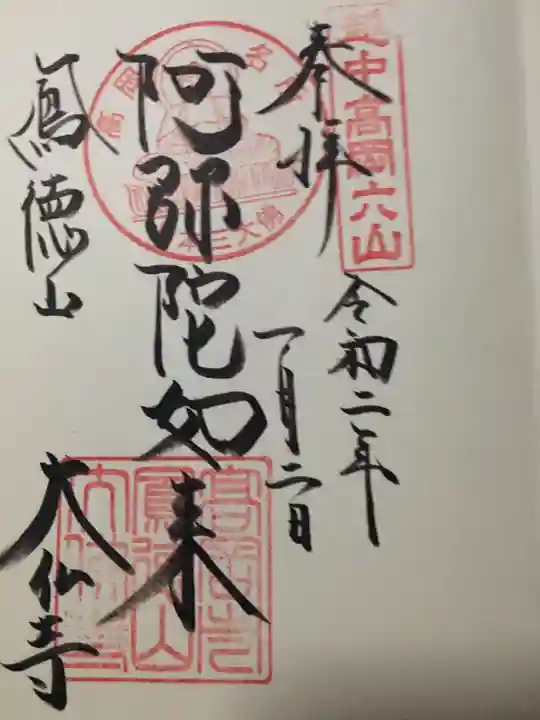 越中高岡六山
奉拝
令和二年
一月二日
阿弥陀如来
鳳徳山
大仏寺
三大佛
鳳徳山